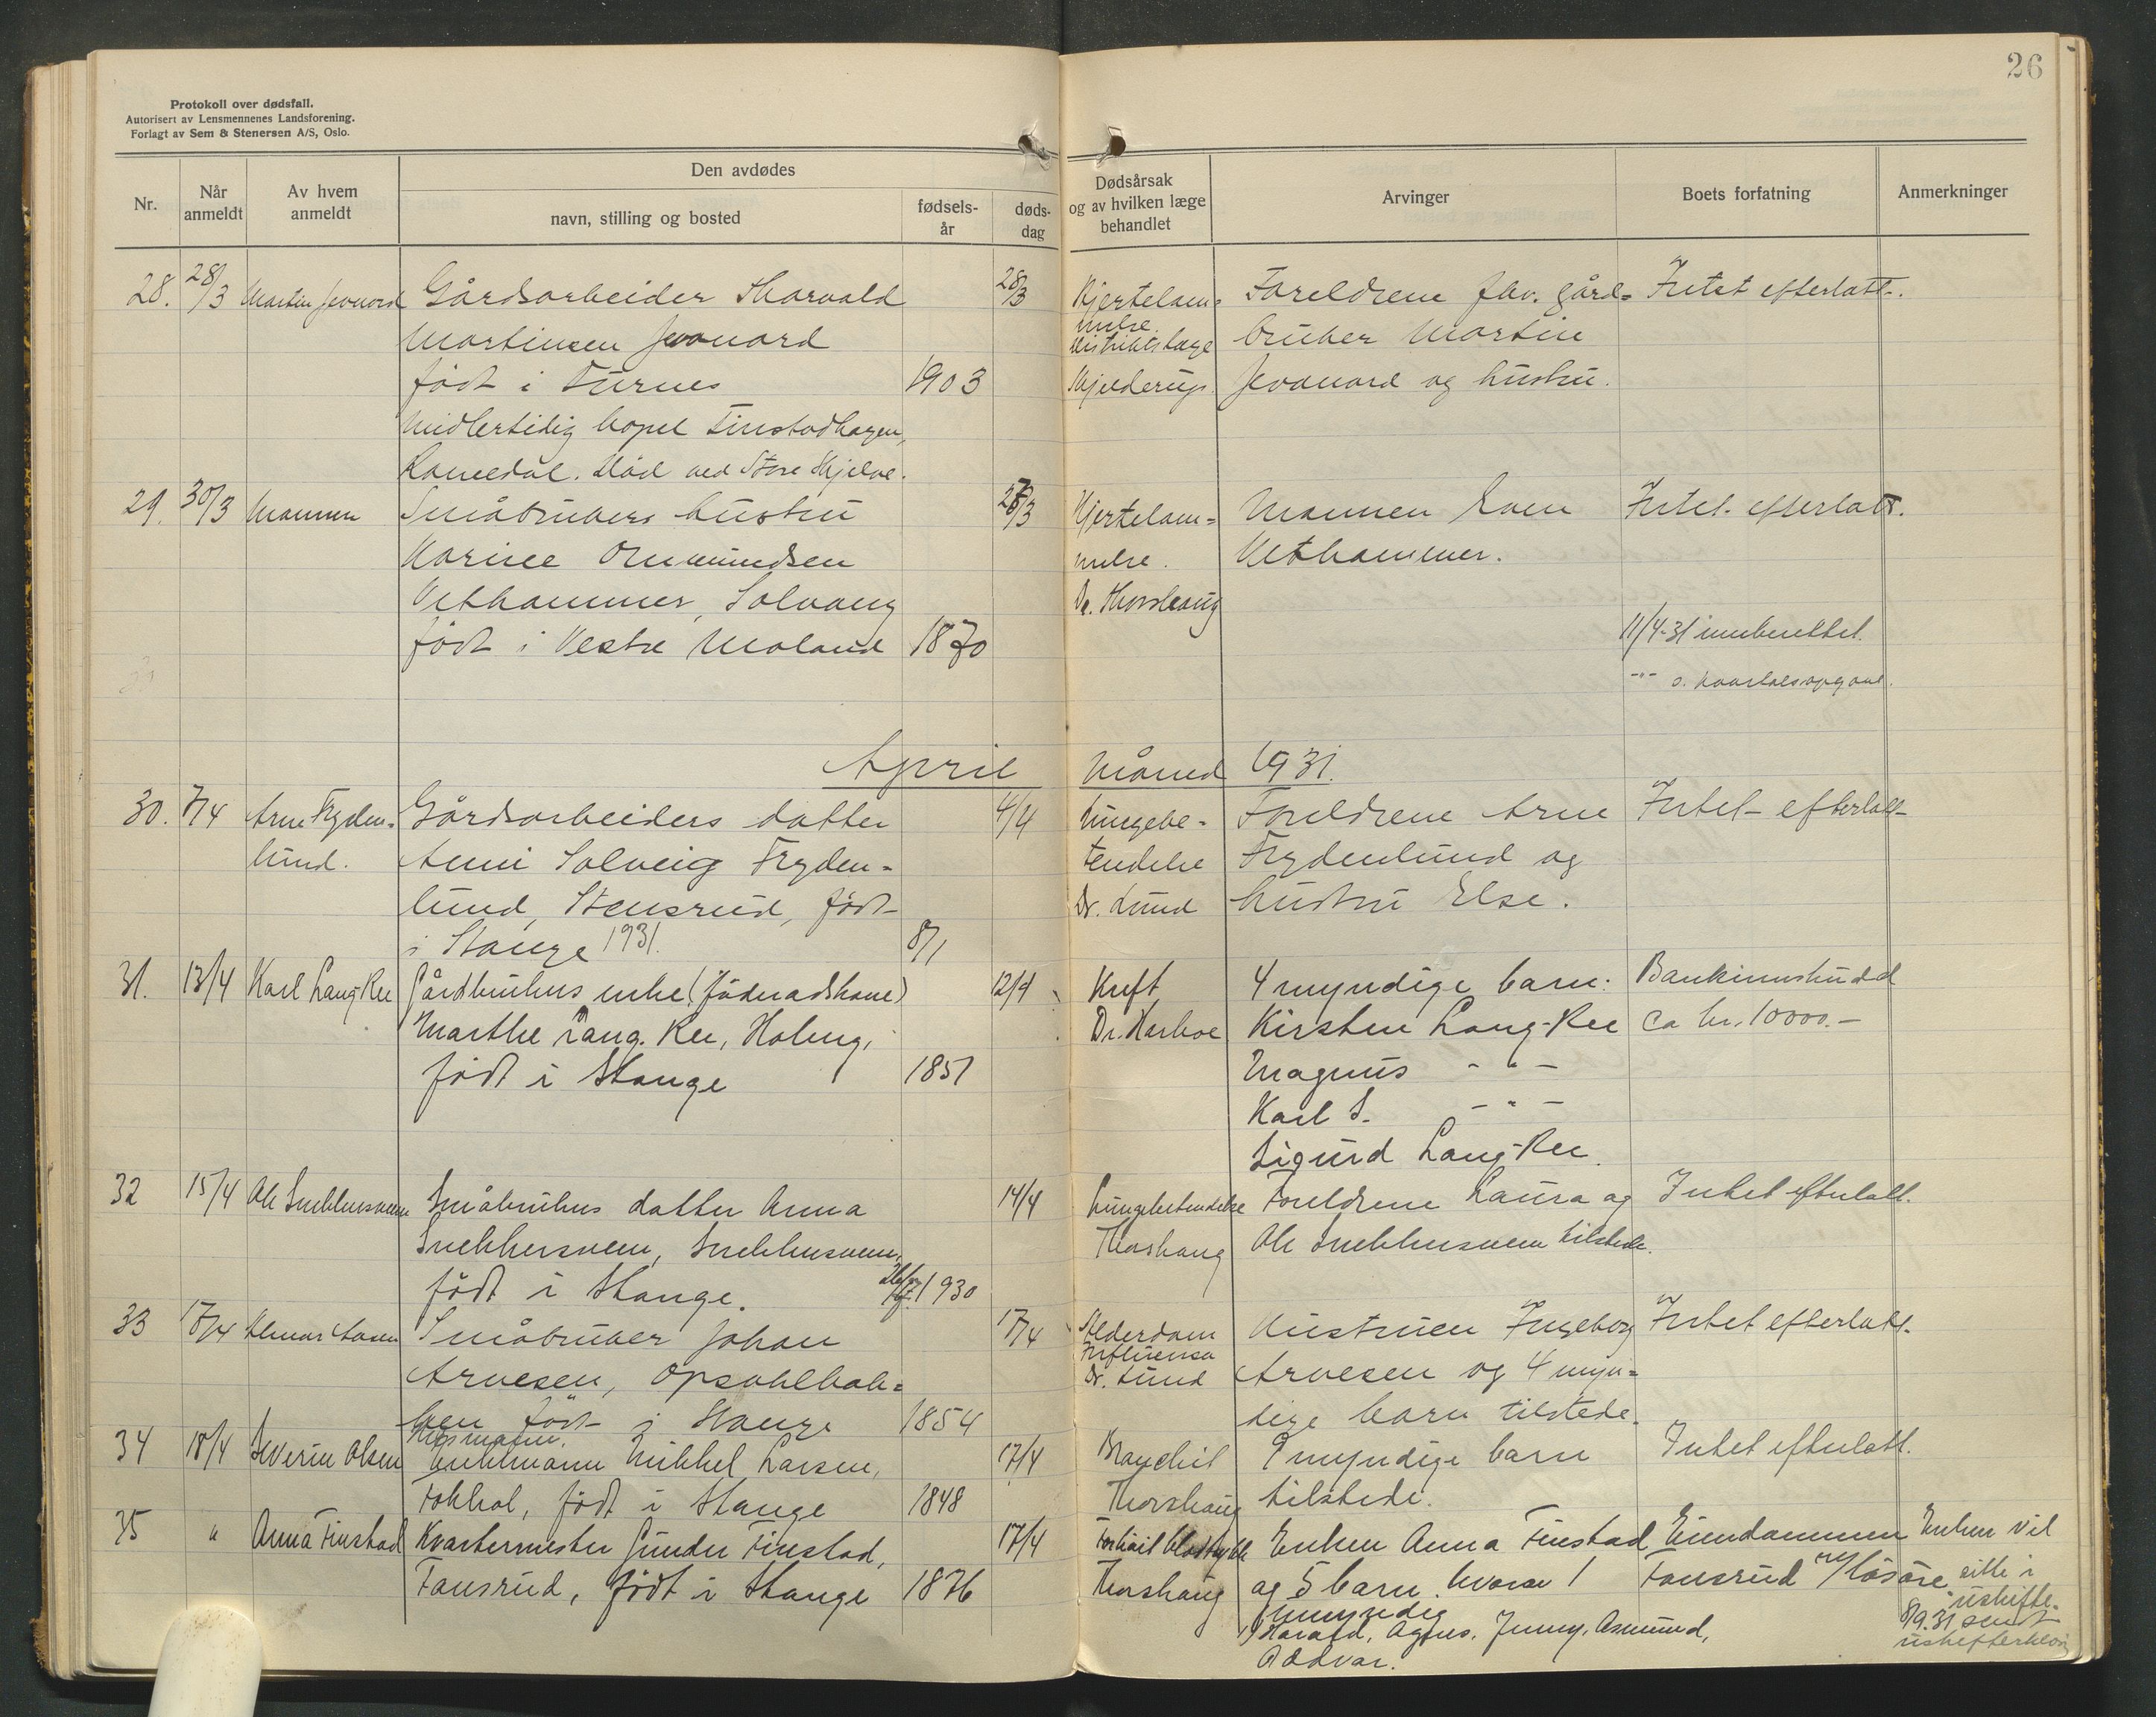 26
Protokoll over dødsfall.
Autorisert av Lensmennenes Landsforening.
Forlagt av Sem & Stenersen A/S, Oslo.
Nr.
Når anmeldt
Av hvem anmeldt
Den avdødes
navn, stilling og bosted
fødsels-år
døds-dag
Dødsårsak og av hvilken læge behandlet
Arvinger
Boets forfatning
Anmerkninger
28. 28/3 Martin Jevanord Gårdsarbeider Thorvald 28/3 Hjertelam= Foreldrene fhv. gård= Intet efterlatt.
Martinsen Jevanord melse. bruker Martin
Distriktslæge
født i Furnes 1903 Kjelderup. Jevanord og hustru.
Midlertidig bopel Finstadhagen,
Romedal. Död ved Store Skjelve.
29. 30/3 Mannen Småbrukers hustru 28/3 Hjertelam= Mannen Even Intet efterlatt.
Karine Ommundsen melse. Vethammer.
Vethammer, Solvang Dr. Thorshaug
født i Vestre Moland 1870 11/4-31 innberettet.
-"- s. kvartalsopgave.
April Måned 1931.
30. 7/4 Arne Fryden= Gårdsarbeiders datter 4/4 Lungebe= Foreldrene Arne Intet efterlatt
lund. Anni Solveig Fryden= tendelse Frydenlund og
lund, Stensrud, født Dr. Lund hustru Else.
i Stange 1931. 8/1
31. 13/4 Karl Lang-Ree Gårdbrukers enke (föderådskone) 12/4 Kreft 4 myndige barn: Bankinnskudd
Marthe Lang-Ree, Dr. Harboe Kirsten Lang-Ree ca kr. 10000.-
født i Stange 1851 Magnus - " -
Karl S. - " -
Sigurd Lang-Ree.
32 15/4 Ole Snekkersveen Småbrukers datter Anna 14/4 Lungebetendelse Foreldrene Laura og Intet efterlatt.
Snekkersveen, Snekkersveen, Thorshaug Ole Snekkersveen tilstede.
født i Stange. 1930
33 17/4 Småbruker Johan 17/4 Alderdom Hustruen Ingeborg Intet efterlatt.
Influensa
Arnesen, Opsahlbak= Dr. Lund Arnesen og 4 myn=
ken født i Stange 1854 dige barn tilstede.
34 18/4 Severin Olsen Husmann. Enkemann Mikkel Larsen, 17/4 Bronchit 9 myndige barn Intet efterlatt.
Fokhol, født i Stange 1848 Thorshaug tilstede.
35 " Anna Finstad Kvartermester Gunder Finstad, 17/4 Forhöit blodtrykk Enken Anna Finstad Eiendommen Enken vil
Fonsrud, født i Stange 1876 Thorshaug og 5 barn hvorav 1 Fonsrud m/løsøre sitte i
umyndig uskifte.
1) Harald, Agnes, Jenny, Asmund, 8/9.31 sendt
Oddvar. uskifteerklær.